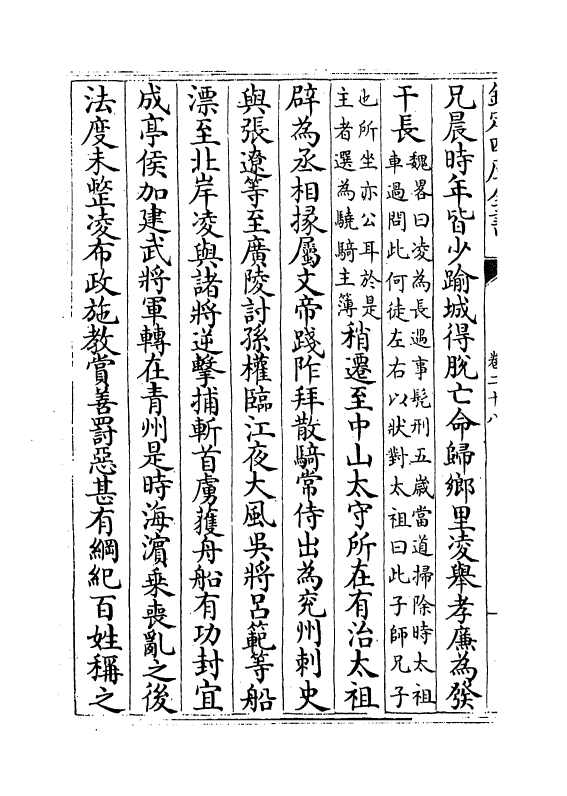 欽定四庫全書
卷二十八
兄晨時年皆少踰城得脫亡命歸鄉里凌舉孝廉為發
干長
魏畧曰凌為長遇事髠刑五歲當道掃除時太祖
車過問此何徒左右以狀對太祖曰此子師兄子
也所坐亦公耳於是
主者選為驍騎主簿
稍遷至中山太守所在有治太祖
辟為丞相掾屬文帝踐阼拜散騎常侍出為兖州刺史
與張遼等至廣陵討孫權臨江夜大風吳將呂範等船
漂至北岸凌與諸將逆擊捕斬首虜獲舟船有功封宜
成亭侯加建武將軍轉在青州是時海濵乘喪亂之後
法度未整凌布政施教賞善罰惡甚有綱紀百姓稱之